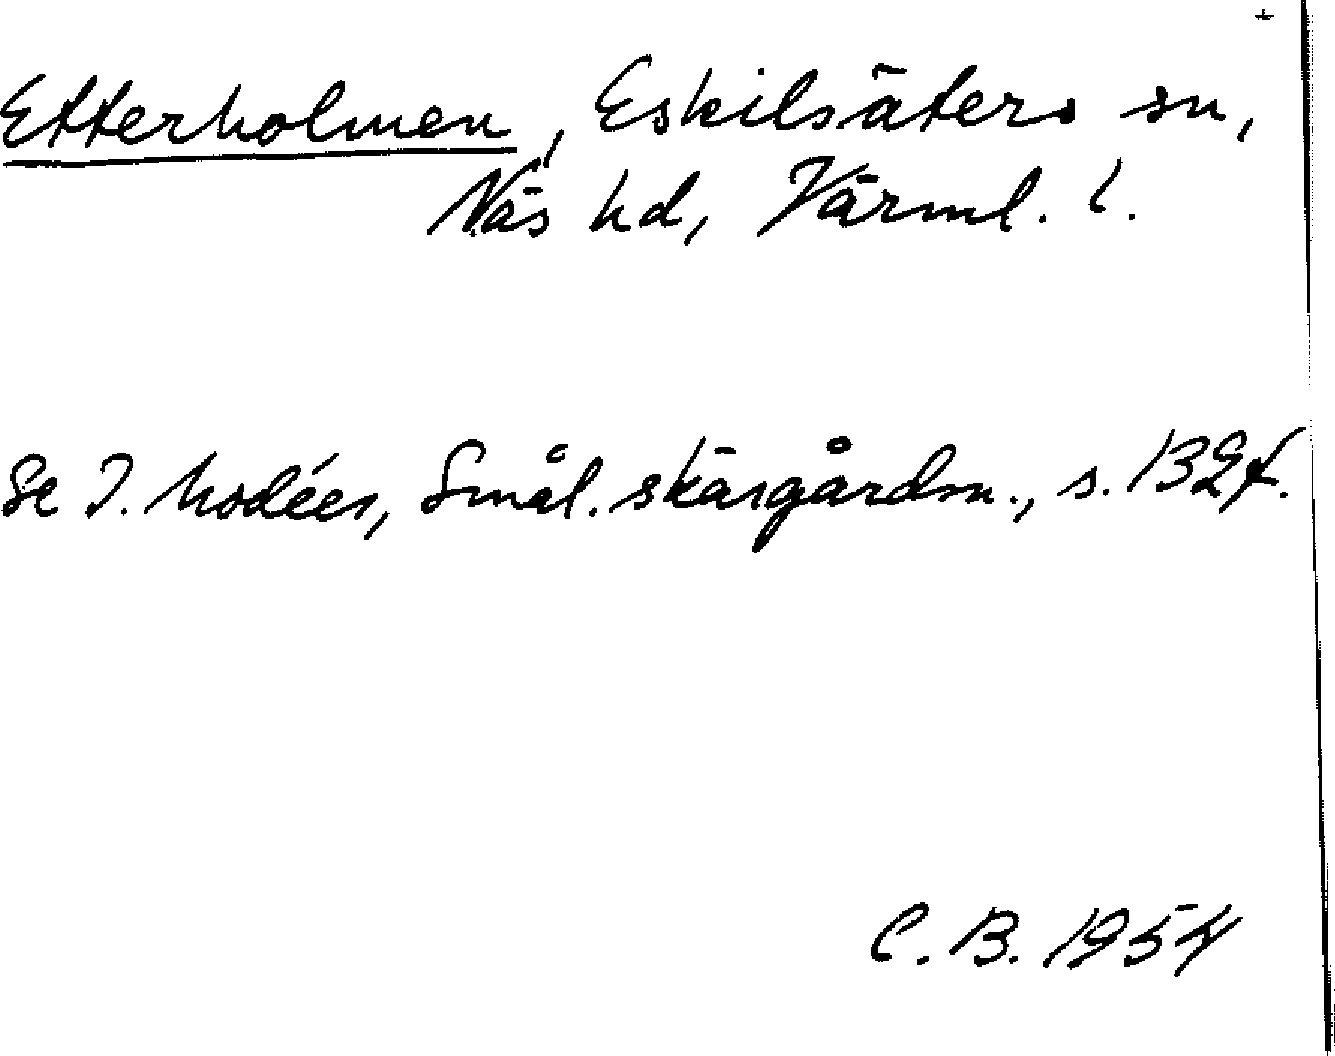 +
Etterholmen, Eskilsäters sn,
Näs hd, Värml. l.
Se I. Modéer, Smål. skärgårdsn., s. 132f.
C. B. 1954